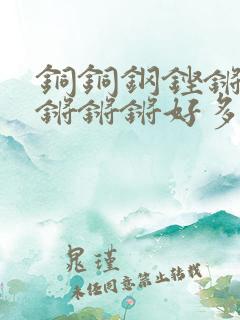 銅銅鋼鏗鏘
鏘鏘鏘好多
晁瑾
未经同意禁止转载